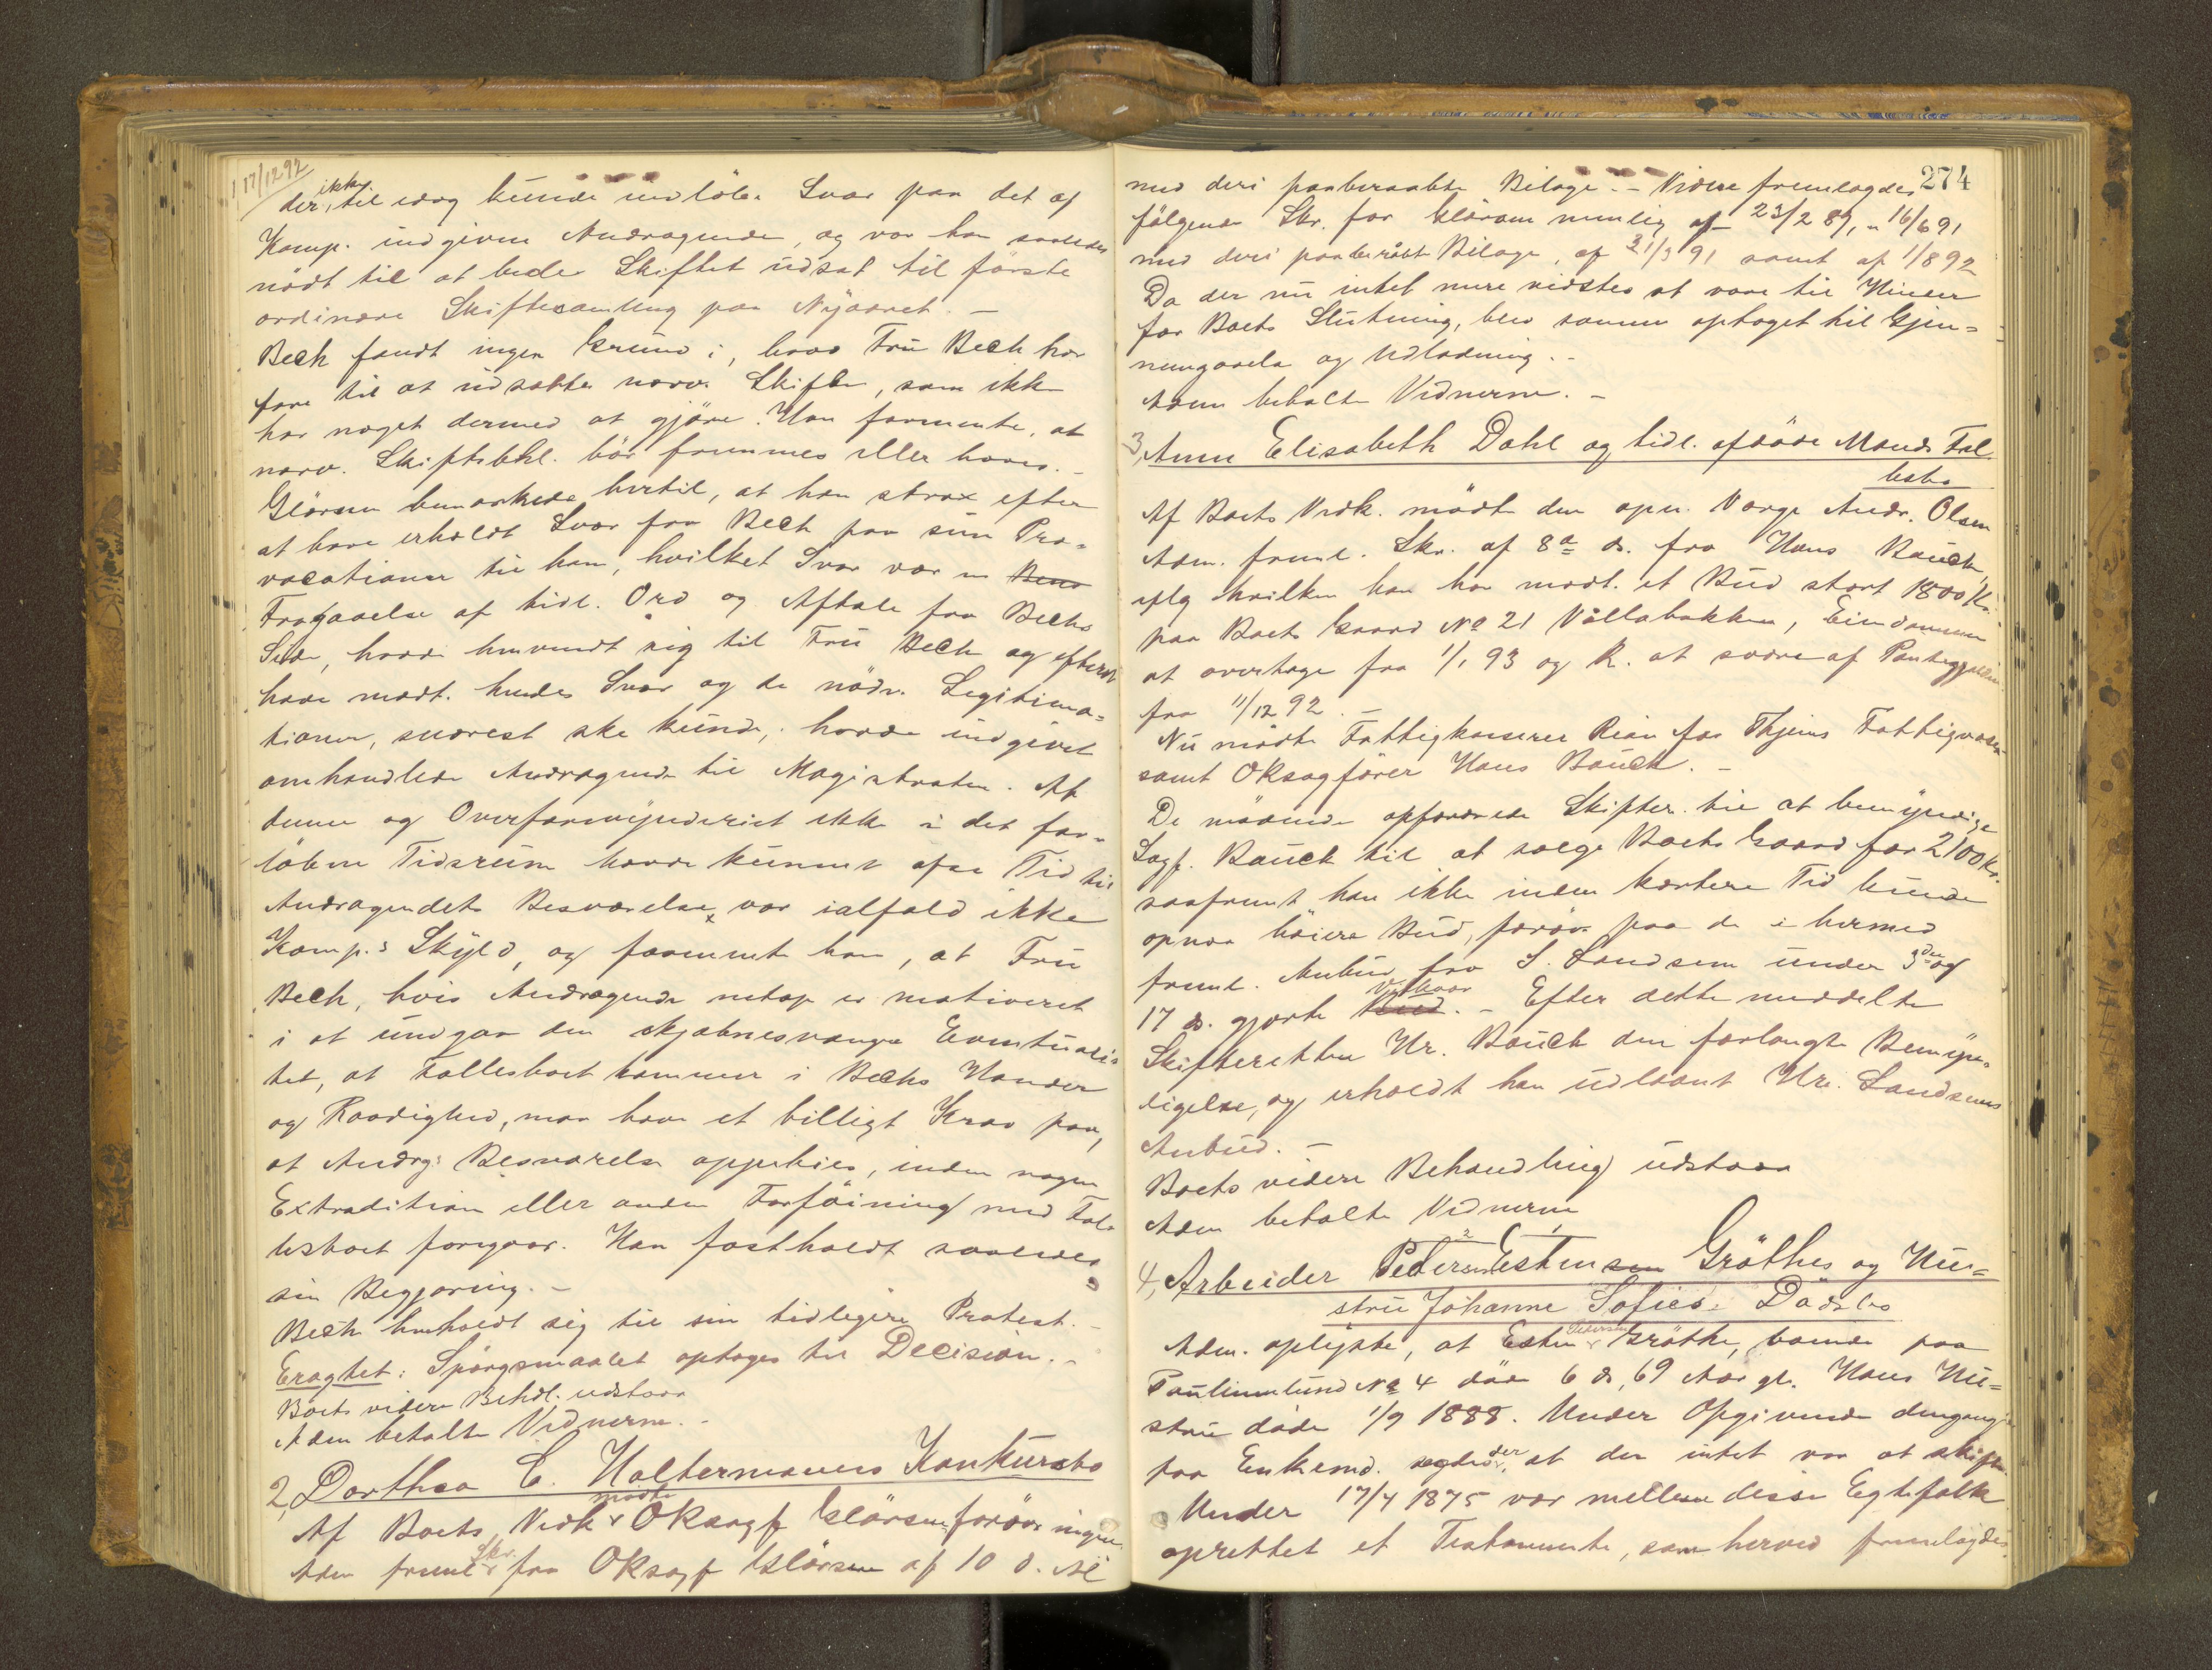 17/12 92
der ikke til idag kunde indløbe Svar paa det af
Komp. indgivne Andragende, og var han saaledes
nödt til at bede Skiftet udsat til förste
ordinære Skiftesamling paa Nyaaret. –
Bech fandt ingen Grund i, hvad Fru Bech har
fore til at udsætte nærv. Skifte, som ikke
har noget dermed at gjöre. Han formente, at
nærv. Skiftebhl. bör fremmes eller hæves. –
Glörsen bemærkede hertil, at han strax efter
at have erholdt Svar fra Bech paa sin Pro-
vocationer til ham, hvilket Svar var en Bend
Fragaaelse af tidl. Ord og Aftale fra Bechs
Side, havde henvendt sig til Fru Bech og efterat
have modt. hendes Svar og de nödv. Legitima-
tioner, snarest ske kunde, havde indgivet
omhandlede Andragende til Magistraten. At
denne og Overformynderiet ikke i det for-
löbne Tidsrum havde kunnet afse Tid til
Andragendets Besvarelse, var ialfald ikke
Komp.s Skyld, og formente han, at Fru
Bech, hvis Andragende netop er motiveret
i at undgaa den skjæbnesvangre Eventuali-
tet, at Fællesboet kommer i Bechs Hænder
og Raadighed, maa have et billigt Krav paa,
at Andrg: Besvarelse oppebies, inden nogen
Extradition eller anden Forföining med Fæl-
lesboet foregaar. Han fastholdt saaledes
sin Begjæring. –
Bech henholdt sig til sin tidligere Protest. –
Eragtet: Spörgsmaalet optages til Decision. –
Boets videre Behdl. udstaar
Adm betalte Vidnerne. –
2, Dorthea C. Haltermanns Konkursbo
Af Boets Vedk mödte OKsagf Glörsen, forövr. ingen.
Adm freml Skr. fra OKsagf Glörsen af 10 d. M
274
med deri paaberaabte Bilage. – Videre fremlagdes
fölgende Skr. fra Glörsen nemlig af 23/2 89, " 16/6 91
med deri paaberåbt Bilage, af 31/3 91 samt af 1/8 92
Da der nu intet mere vidstes at være til Hinder
for Boets Slutning, blev samme optaget til Gjen-
nemgaaelse og Udlodning. –
Adm betalte Vidnerne. –
3, Anne Elisabeth Dahl og tidl. afdöde Mands Fæl-
lesbo
Af Boets Vedk. mödte den opn. Værge Andr. Olsen
Adm. freml. Skr. af 8de ds. fra Hans Bauck,
iflg hvilken han har modt. et Bud stort 1800 Kr.
paa Boets Gaard No 21 Vollabakken, Eiendommen
at overtage fra 1/1 93 og R. at svare af Pantegjælden
fra 11/12 92. –
Nu mödte Fattigkasserer Rian for Thjems Fattigvæsen
samt OKsagförer Hans Bauck. –
De mödende opfordrede Skifter. til at bemyndige
Sagf. Bauck til at sælge Boets Gaard for 2100 Kr.
saafremt han ikke inden kortere Tid kunde
opnaa höiere Bud, forövr. paa de i hermed
freml. Anbud fra S. Landsem under 3die og
17 ds. gjorte Bud Vilkaar. – Efter dette meddelte
Skifteretten Hr. Bauck den forlangte Bemyn-
digelse, og erholdt han udlaant Hr. Landsems
Anbud. –
Boets videre Behandling udstaar
Adm betalte Vidnerne
4, Arbeider Pedersen Estensen Gröthes og Hu-
stru Johanne Sofies Dödsbo
Adm. oplyste, at Esten Pedersen Gröthe, boende paa
Paulinelund No 4 döde 6 ds, 69 Aar gl. Hans Hu-
stru döde 1/9 1888. Under Opgivende dengang
fra Enkemd. sagdes der, at der intet var at skifte.
Under 17/4 1875 var mellem disse Egtefolk
oprettet et Testamente, som herved fremlagdes